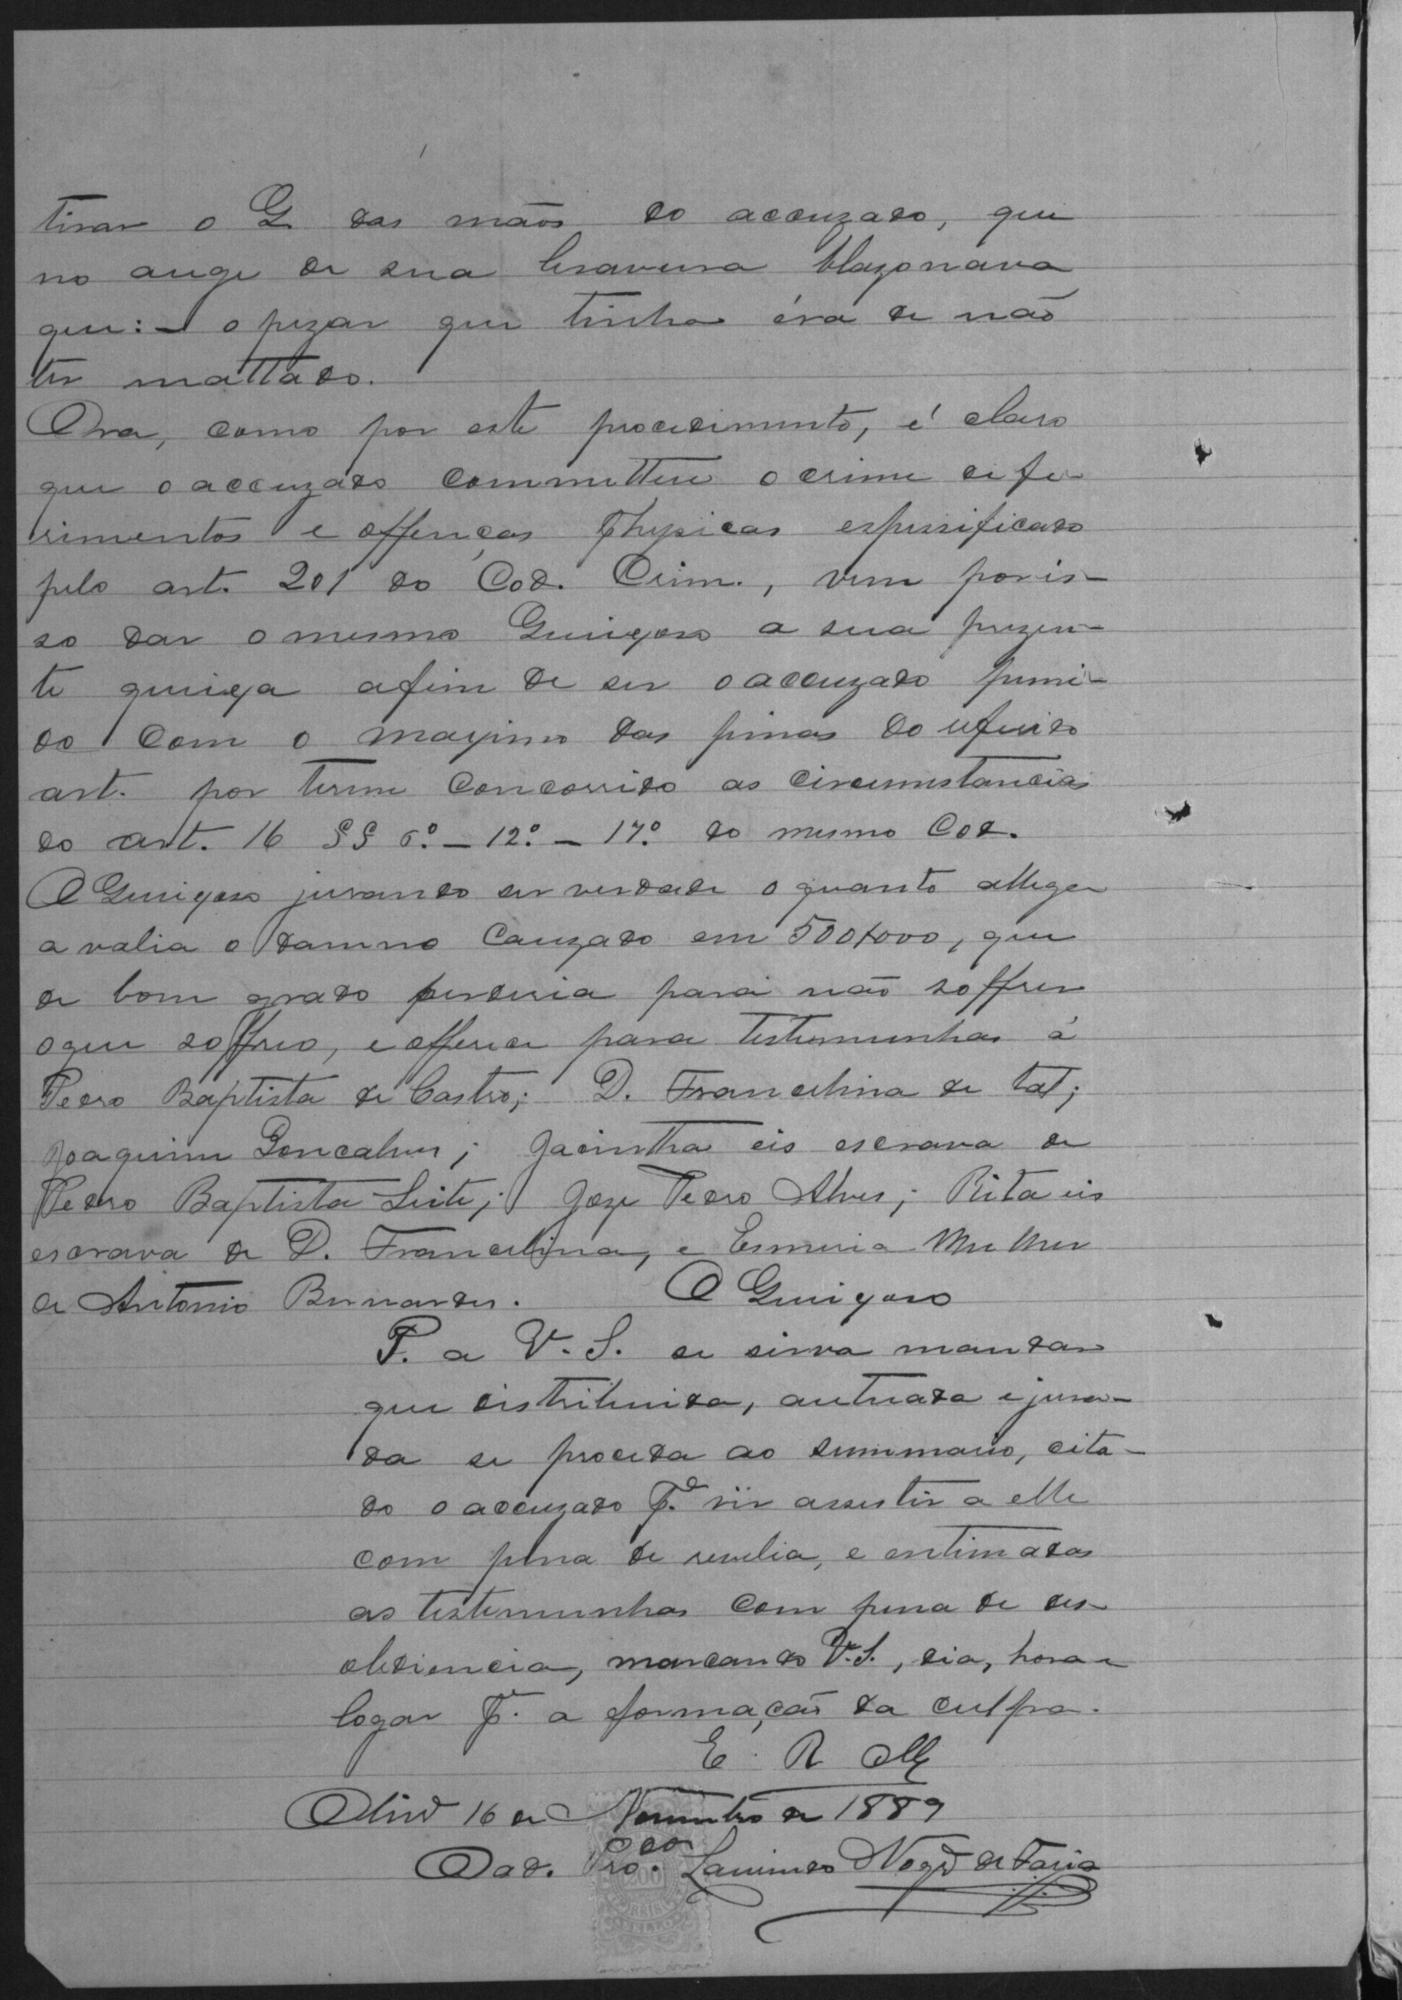 tirar o Q. das mãos do accuzado, que
no auge de sua bravura blazonava
que: – o pezar que tinha éra de não
ter mattado.
Ora, como por este procedimento, é claro
que o accuzado commetteu o crime de fe-
rimentos e offenças physicas espessificado
pelo art. 201 do Cod. Crim., vem por is-
so dar o mesmo Queixoso a sua prezen-
te queixa afim de ser o accuzado puni-
do com o maximo das penas do referido
art. por terem concorrido as circumstancias
do art. 16 §§ 6.º – 12.º – 17.º do mesmo Cod.
O Queixoso jurando ser verdade o quanto allega
avalia o damno cauzado em 500$000, que
de bom grado perderia para não soffrer
o que soffreo, e offerece para testemunhas á
Pedro Baptista de Castro; D. Francelina de tal;
Joaquim Goncalves; Jacintha eis escrava de
Pedro Baptista Leite; Joze Pedro Alves; Rita eis
escrava de D. Francelina, e Esmeria Mulher
de Antonio Bernardes. O Queixoso
P. a V. S. se sirva mandar
que distribuida, autuada e jura-
da se proceda ao summario, cita-
do o accuzado p.ª vir assestir a elle
com pena de revelia, e entimadas
as testemunhas com pena de des-
obediencia, marcando V. S., dia, hora e
logar p.ª a formação da culpa.
E. R. Mce
Olivrª 16 de Novembro de 1889
O ad. Prodor. Lavindo Nogrª de Faria
200